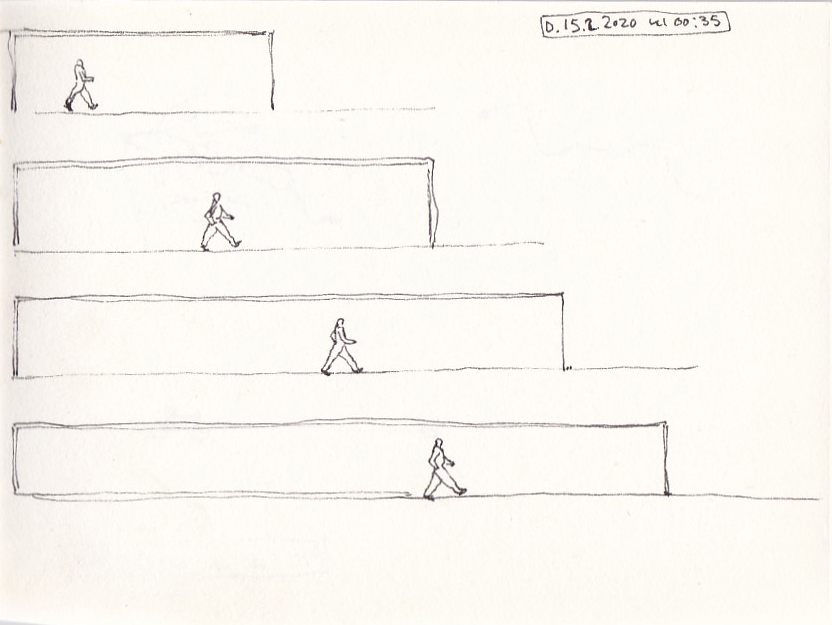 D. 15.2.2020 kl 00:35